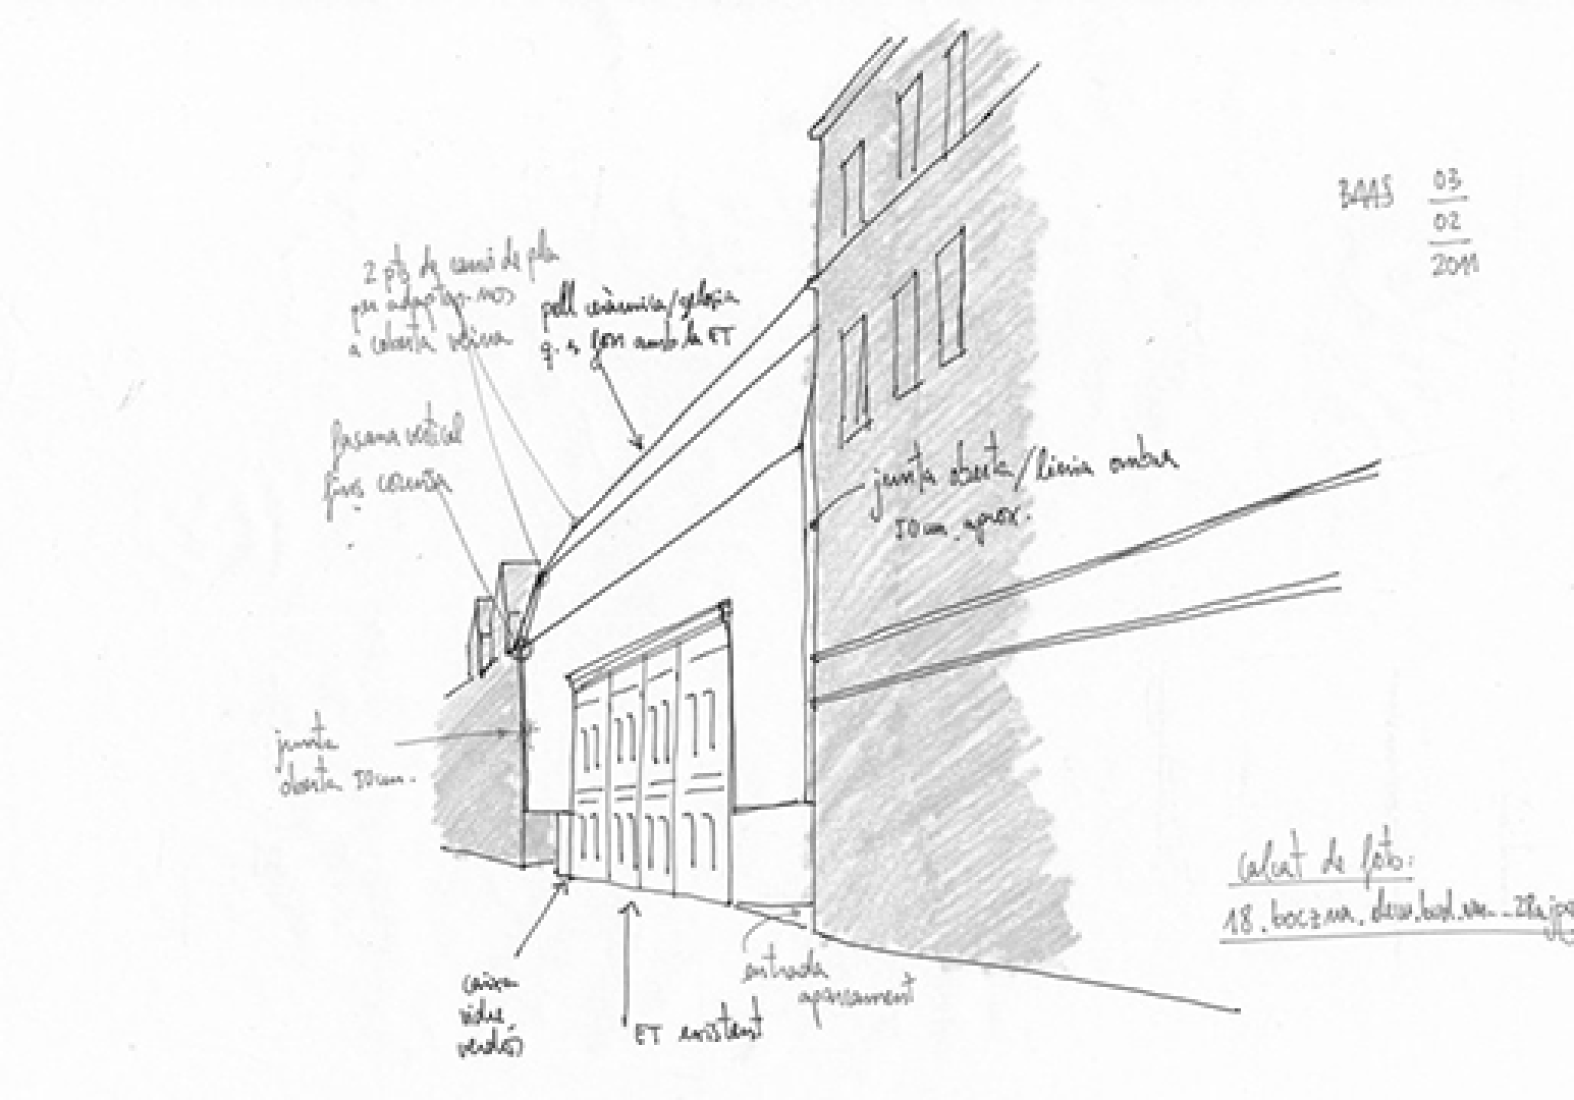 BAAS 03
02
2011
2 pts de canvi de pla
per adaptar-nos
a coberta veïna
pell ceràmica/gelosia
q. es fon amb la ET
façana vertical
fins cornisa
junta oberta/línia ombra
50 cm. aprox.
junta
oberta 50 cm.
calcat de foto:
18.boczna.
entrada
aparcament
caixa
vidre
ET existent